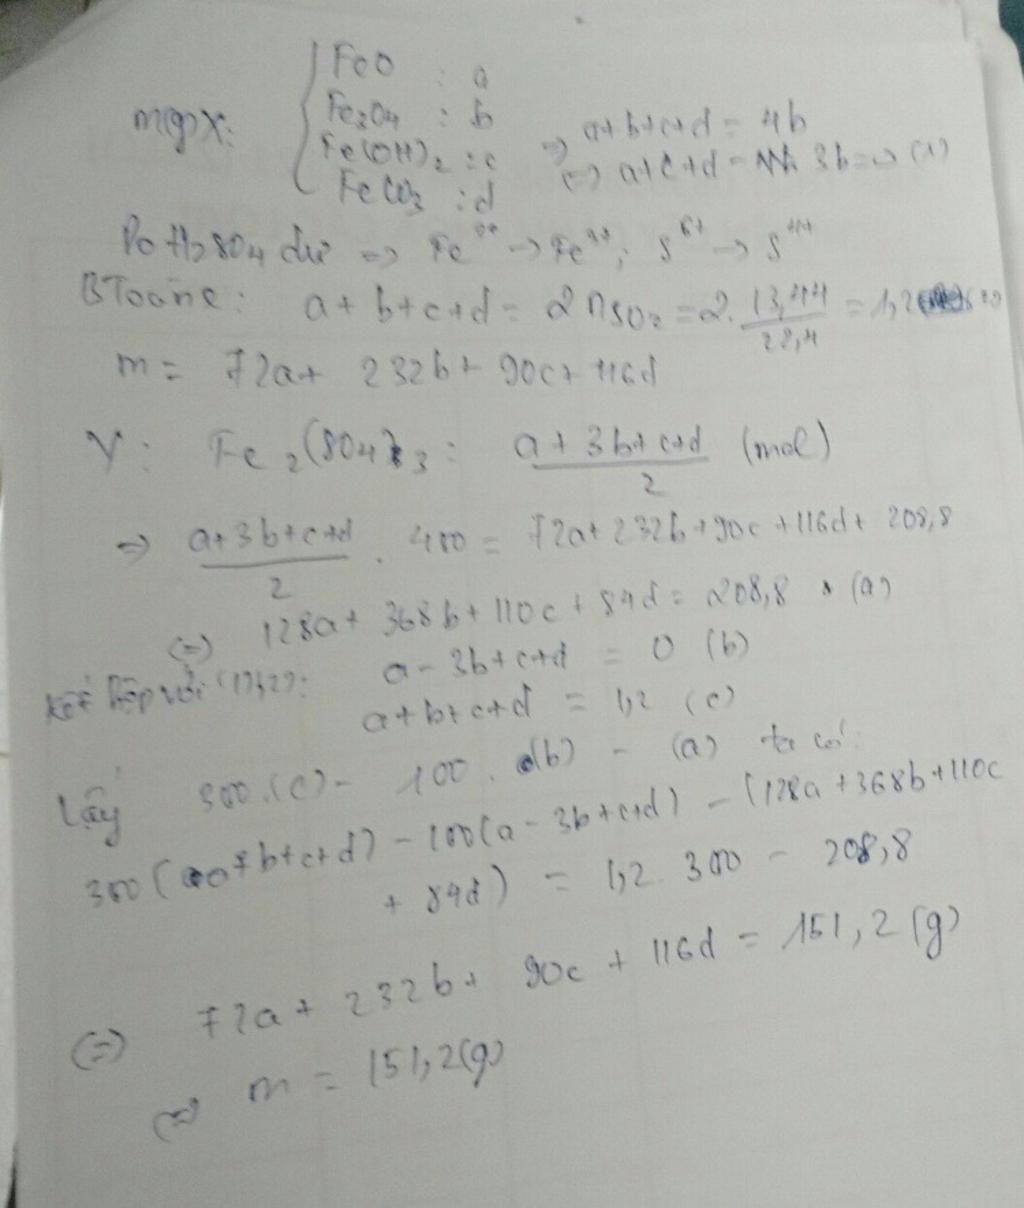 m(g)X:
FeO : a
Fe3O4 : b
Fe(OH)2 : c
FeCO3 : d
=> a+b+c+d = 4b
<=> a+c+d - 3b = 0 (1)
Do H2SO4 dư => Fe2+ -> Fe3+; S6+ -> S+4
BToàn e: a + b + c + d = 2nSO2 = 2. 13,44/22,4 = 1,2
m = 72a + 232b + 90c + 116d
Y: Fe2(SO4)3 : (a + 3b + c + d)/2 (mol)
=> (a + 3b + c + d)/2 . 400 = 72a + 232b + 90c + 116d + 208,8
(=) 128a + 368b + 110c + 84d = 208,8 (a)
Kết hợp với (1),(2): a - 3b + c + d = 0 (b)
a + b + c + d = 1,2 (c)
Lấy 300.(c) - 100.(b) - (a) ta có:
300(a + b + c + d) - 100(a - 3b + c + d) - (128a + 368b + 110c
+ 84d) = 1,2. 300 - 208,8
(=) 72a + 232b + 90c + 116d = 151,2 (g)
=> m = 151,2(g)